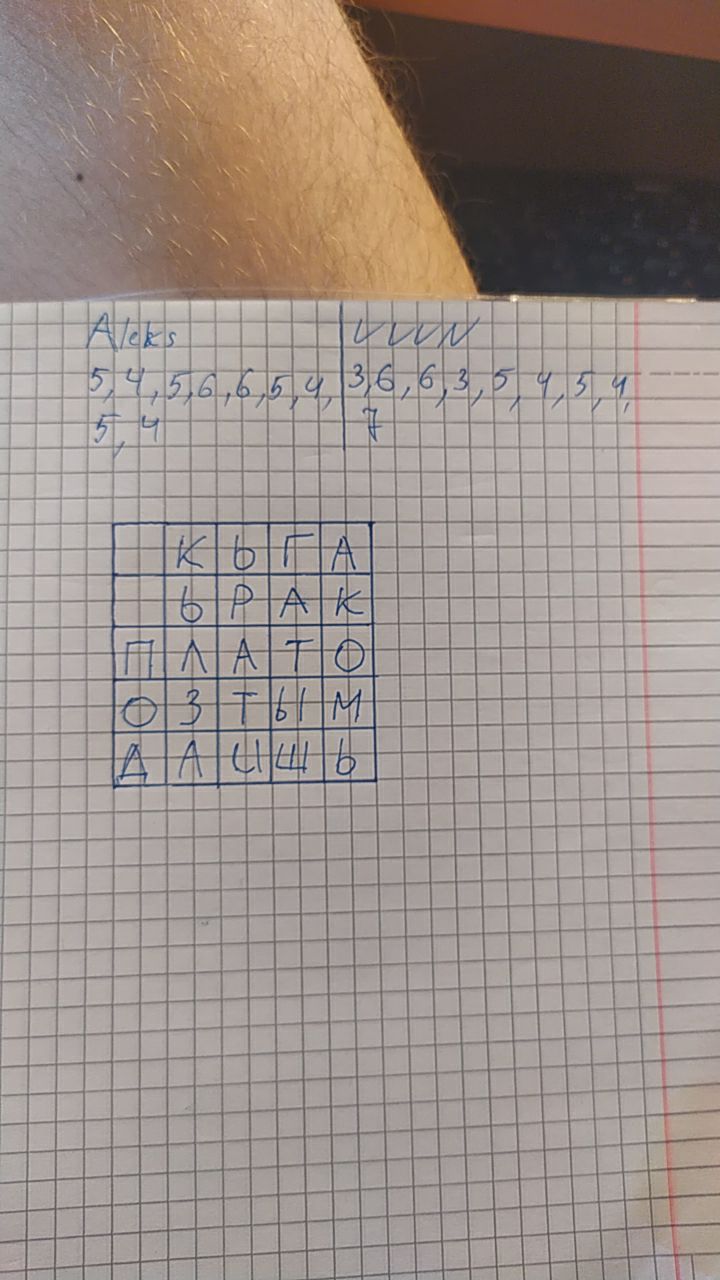 Aleks VVVN
5, 4, 5, 6, 6, 5, 4, 3, 6, 6, 3, 5, 4, 5, 4,
5, 4 7
К Ь Г А
Ь Р А К
П Л А Т О
О З Т Ы М
Д А Ц Ш Ь